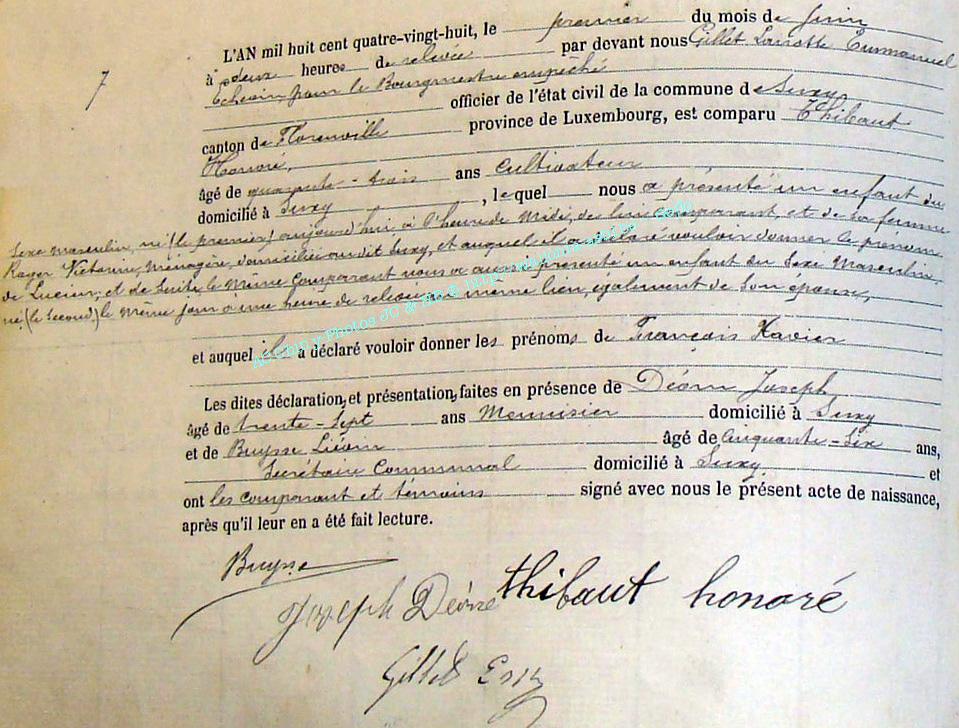 L'AN mil huit cent quatre-vingt-huit, le premier du mois de Juin
7
à deux heures de relevée par devant nous Gillet Lanotte Emmanuel
Echevin pour le Bourgmestre empêché
officier de l'état civil de la commune de Suxy
canton de Florenville province de Luxembourg, est comparu Thibaut
Honoré,
âgé de quarante-trois ans cultivateur
domicilié à Suxy, lequel nous a présenté un enfant du
sexe masculin, né (le premier) aujourd'hui à l'heure de Midi, de lui comparant, et de sa femme
Victorine, Ménagère, domiciliée audit Suxy, et auquel il a déclaré vouloir donner le prénom
de Lucien; et de suite le même comparant nous a aussi présenté un enfant du sexe Masculin,
né (le second) le même jour à une heure de relevée, au même lieu, également de son épouse,
et auquel il a déclaré vouloir donner les prénoms de François Xavier
Les dites déclaration, et présentation, faites en présence de Déom Joseph
âgé de trente-sept ans Menuisier domicilié à Suxy
et de Buysse Liévin âgé de cinquante-six ans,
Secrétaire Communal domicilié à Suxy et
ont les comparant et témoins signé avec nous le présent acte de naissance,
après qu'il leur en a été fait lecture.
Buysse
Joseph Déom thibaut honoré
Gillet